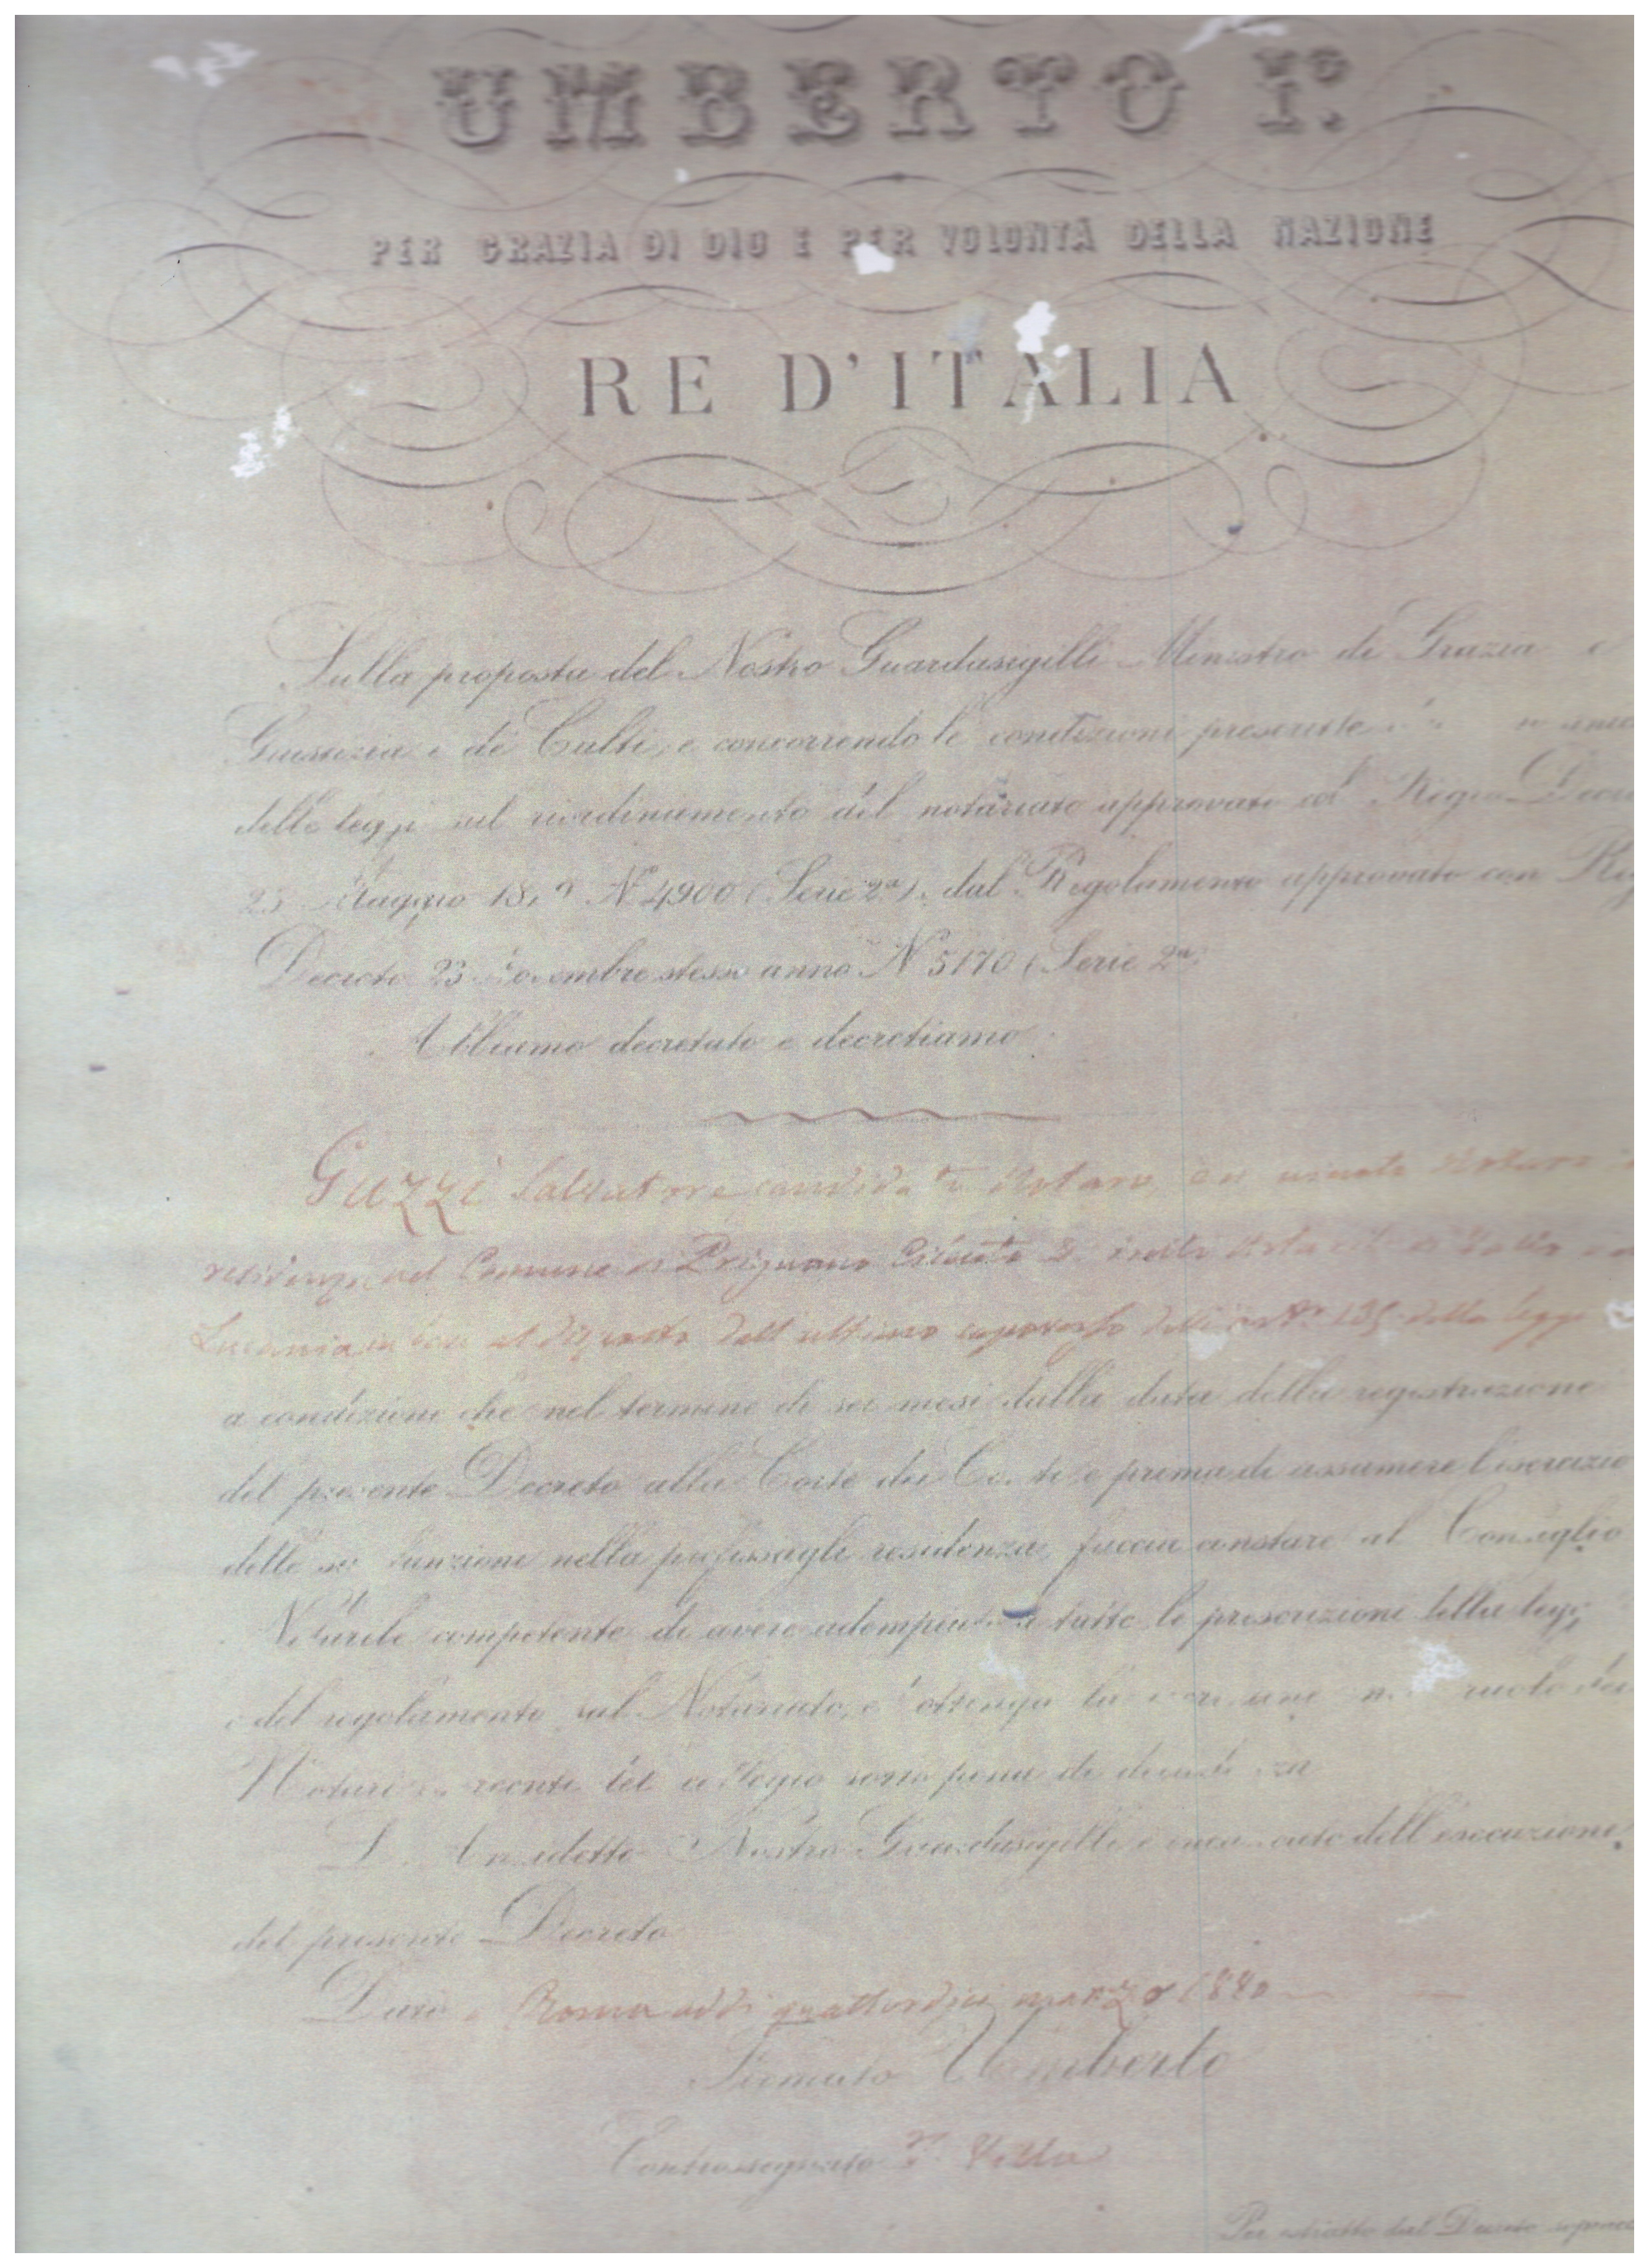 UMBERTO I.º
PER GRAZIA DI DIO E PER VOLONTÀ DELLA NAZIONE
RE D'ITALIA
Sulla proposta del Nostro Guardasigilli Ministro di Grazia e
Giustizia e de' Culti, e concorrendo le condizioni prescritte
delle leggi sul riordinamento del notariato approvato col Regio Decre
25 Maggio N. 4900 (Serie 2ª), dal Regolamento approvato con Reg
Decreto 23 novembre stesso anno N. 5170 (Serie 2ª)
Abbiamo decretato e decretiamo
Guzzi Salvatore, candidato Notaro, è nominato Notaro
residenza nel Comune di Prignano Cilento
Lucania in base al disposto dell'ultimo capoverso dell'art.º 135 della legge
a condizione che nel termine di sei mesi dalla data della registrazione
del presente Decreto alla Corte dei Conti e prima di assumere l'esercizio
delle sue funzioni nella prefissagli residenza, faccia constare al Consiglio
Notarile competente di avere adempiuto a tutte le prescrizioni della legge
e del regolamento sul Notariato, e ottenga la ruolo dei
Notari del collegio sotto pena di decadenza
Nostro Guardasigilli è incaricato dell'esecuzione
del presente Decreto
Dato a Roma addì quattordici marzo 1880
Firmato Umberto
Controssegnato T. Villa
Per estratto dal Decreto